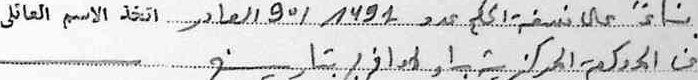 بناءً على نسخة الحكم عدد 1491 / 90 الصادر اتخذ الاسم العائلي
من المحكمة المركزية با بتاريخ